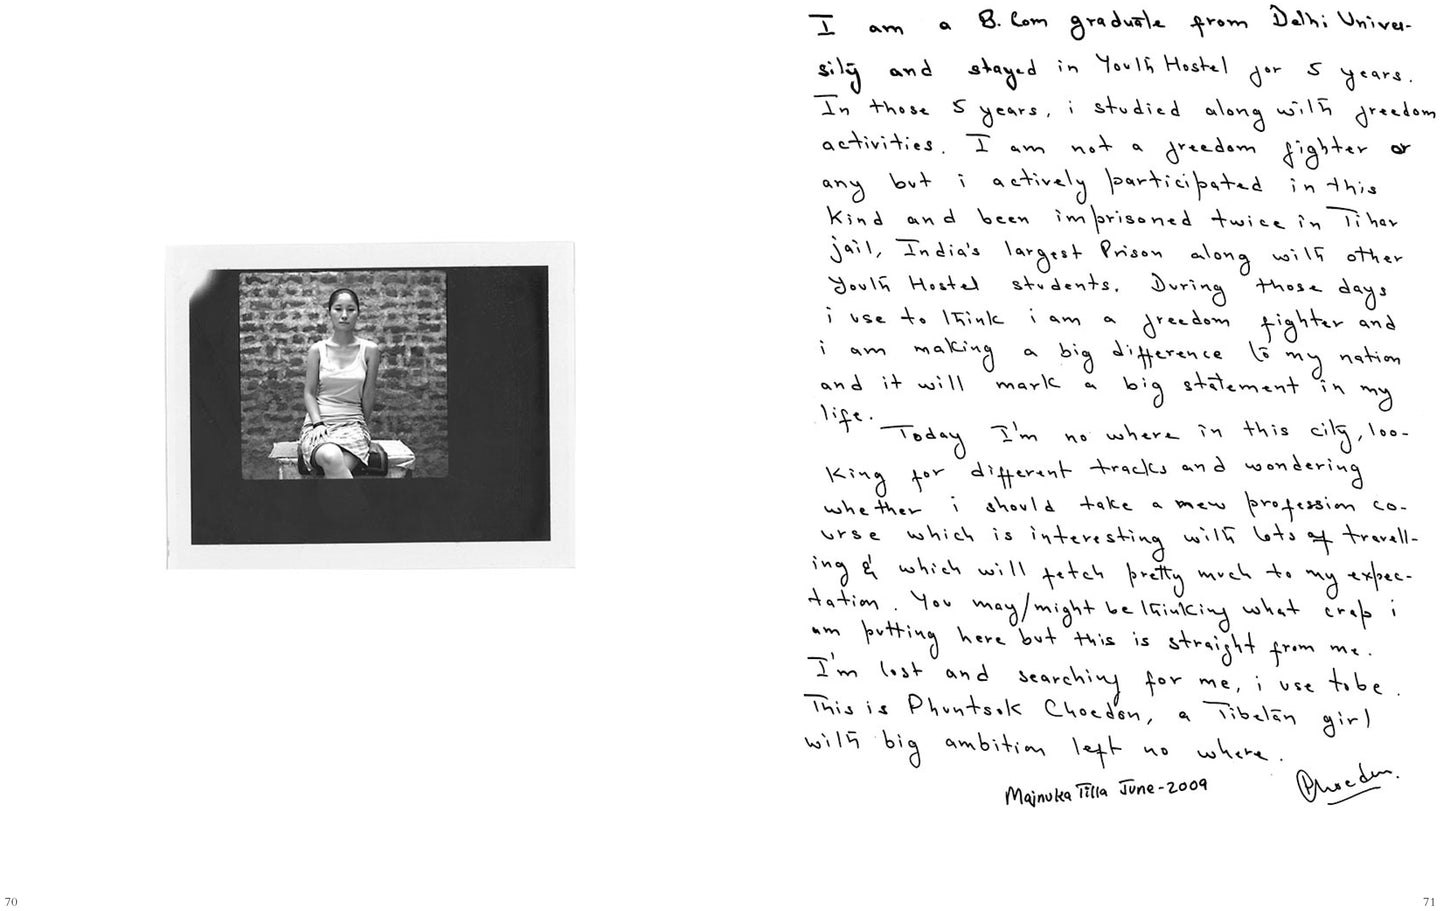 I am a B.Com graduate from Delhi Univer-
sity and stayed in Youth Hostel for 5 years.
In those 5 years, i studied along with freedom
activities. I am not a freedom fighter or
any but i actively participated in this
kind and been imprisoned twice in Tihar
jail, India's largest Prison along with other
Youth Hostel students. During those days
i use to think i am a freedom fighter and
i am making a big difference to my nation
and it will mark a big statement in my
life.
Today I'm no where in this city, loo-
king for different tracks and wondering
whether i should take a new profession co-
urse which is interesting with lots of travell-
ing & which will fetch pretty much to my expec-
tation. You may/might be thinking what crap i
am putting here but this is straight from me.
I'm lost and searching for me, i use to be.
This is Phuntsok Choedon, a Tibetan girl
with big ambition left no where.
Majnuka Tilla June-2009
Choedon.
70
71